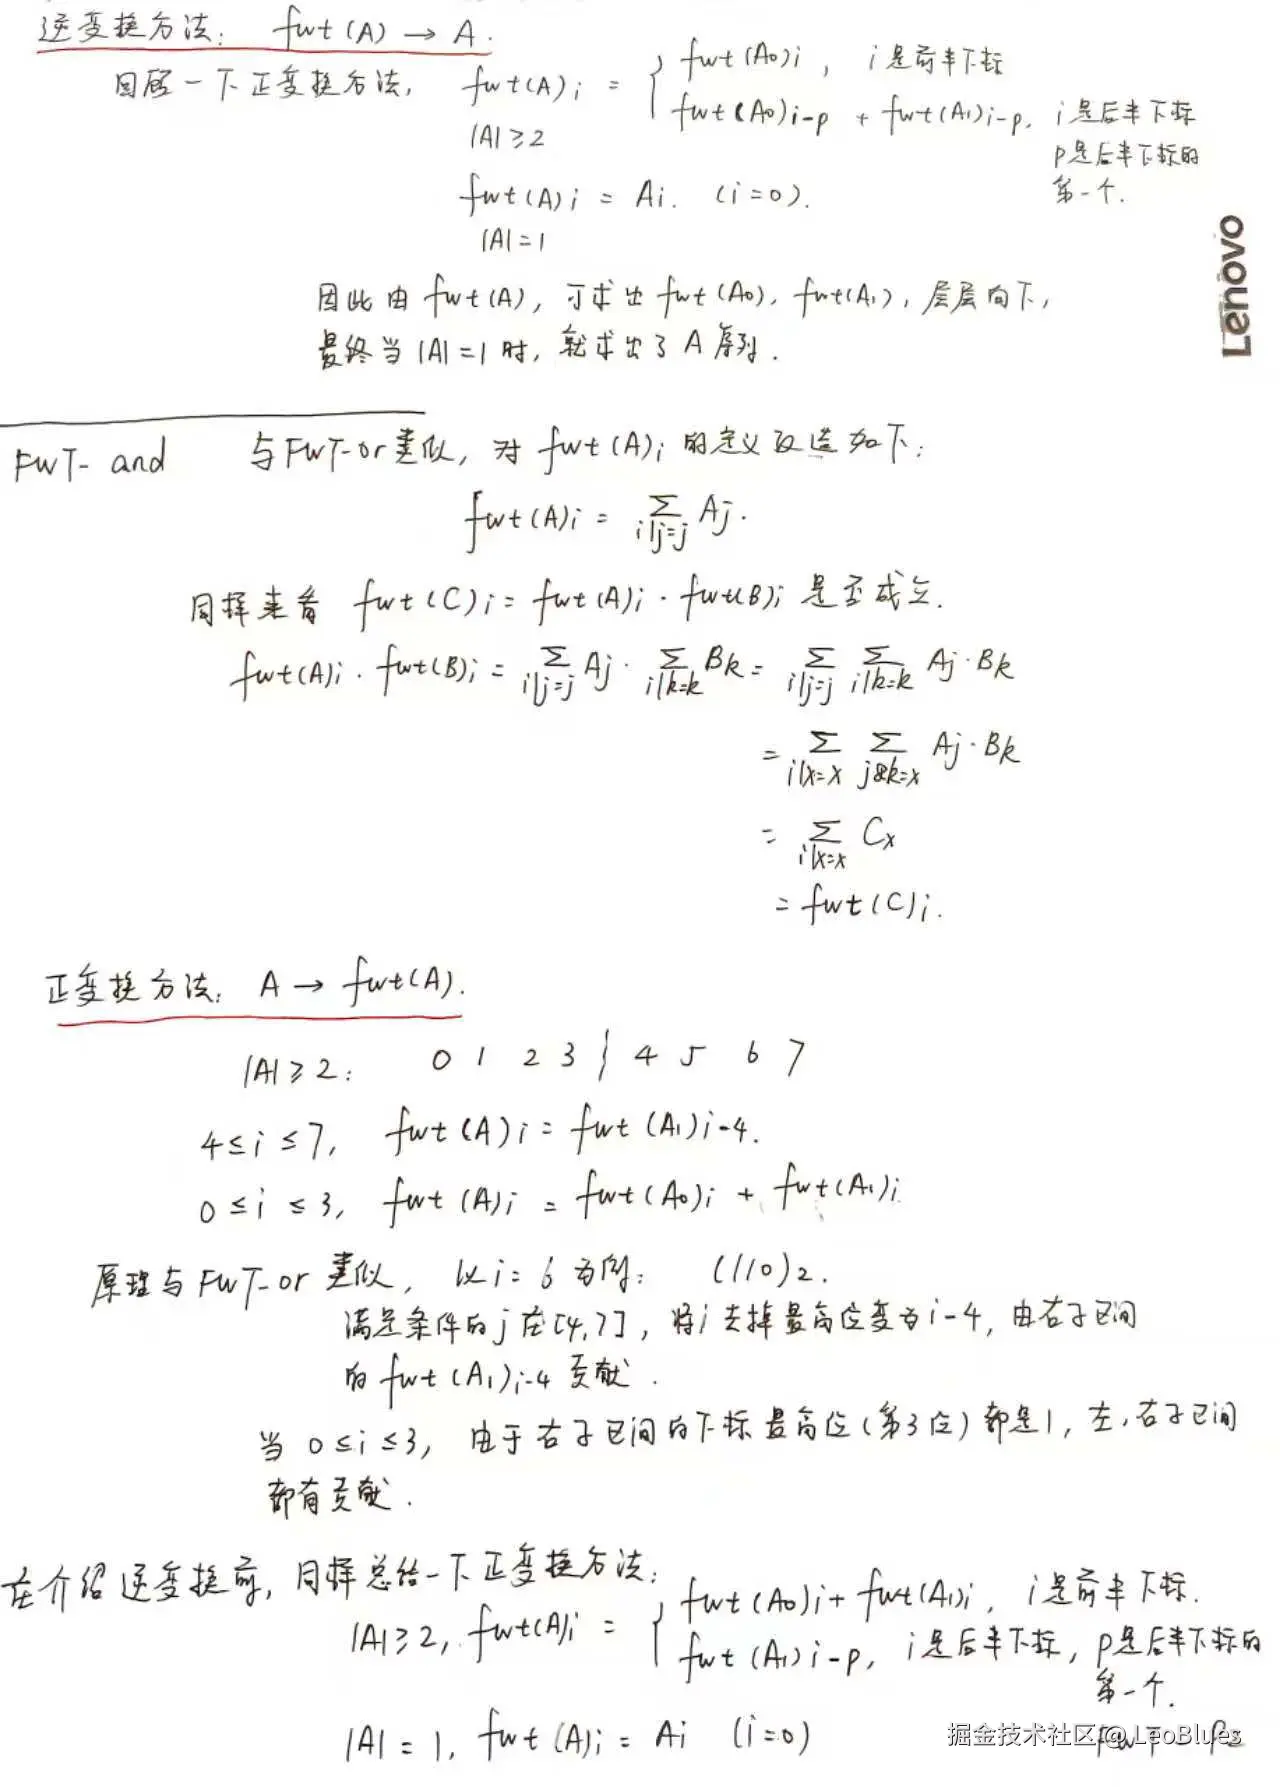 逆变换方法: fwt(A) → A.
回顾一下正变换方法, fwt(A)i = { fwt(A0)i , i是前半下标
|A|≥2
fwt(A0)i-p + fwt(A1)i-p, i是后半下标
p是后半下标的
第一个.
fwt(A)i = Ai. (i=0).
|A|=1
因此由 fwt(A), 可求出 fwt(A0), fwt(A1), 层层向下,
最终当 |A|=1 时, 就求出了 A 序列.
Lenovo
FWT-and 与FWT-or类似, 对 fwt(A)i 的定义改造如下:
fwt(A)i = Σ i|j=j Aj.
同样来看 fwt(C)i = fwt(A)i · fwt(B)i 是否成立.
fwt(A)i · fwt(B)i = Σ i|j=j Aj · Σ i|k=k Bk = Σ i|j=j Σ i|k=k Aj·Bk
= Σ i|x=x Σ j&k=x Aj·Bk
= Σ i|x=x Cx
= fwt(C)i.
正变换方法: A → fwt(A).
|A|≥2: 0 1 2 3 | 4 5 6 7
4≤i≤7, fwt(A)i = fwt(A1)i-4.
0≤i≤3, fwt(A)i = fwt(A0)i + fwt(A1)i
原理与FWT-or类似, 以i=6为例: (110)2.
满足条件的j在[4,7], 将i去掉最高位变为i-4, 由右子区间
的 fwt(A1)i-4 贡献.
当 0≤i≤3, 由于右子区间的下标最高位(第3位)都是1, 左,右子区间
都有贡献.
在介绍逆变换前, 同样总结一下正变换方法:
|A|≥2, fwt(A)i = { fwt(A0)i + fwt(A1)i, i是前半下标.
fwt(A1)i-p, i是后半下标, p是后半下标的
第一个.
|A|=1, fwt(A)i = Ai (i=0)
FWT - P2
掘金技术社区 @ LeoBlues